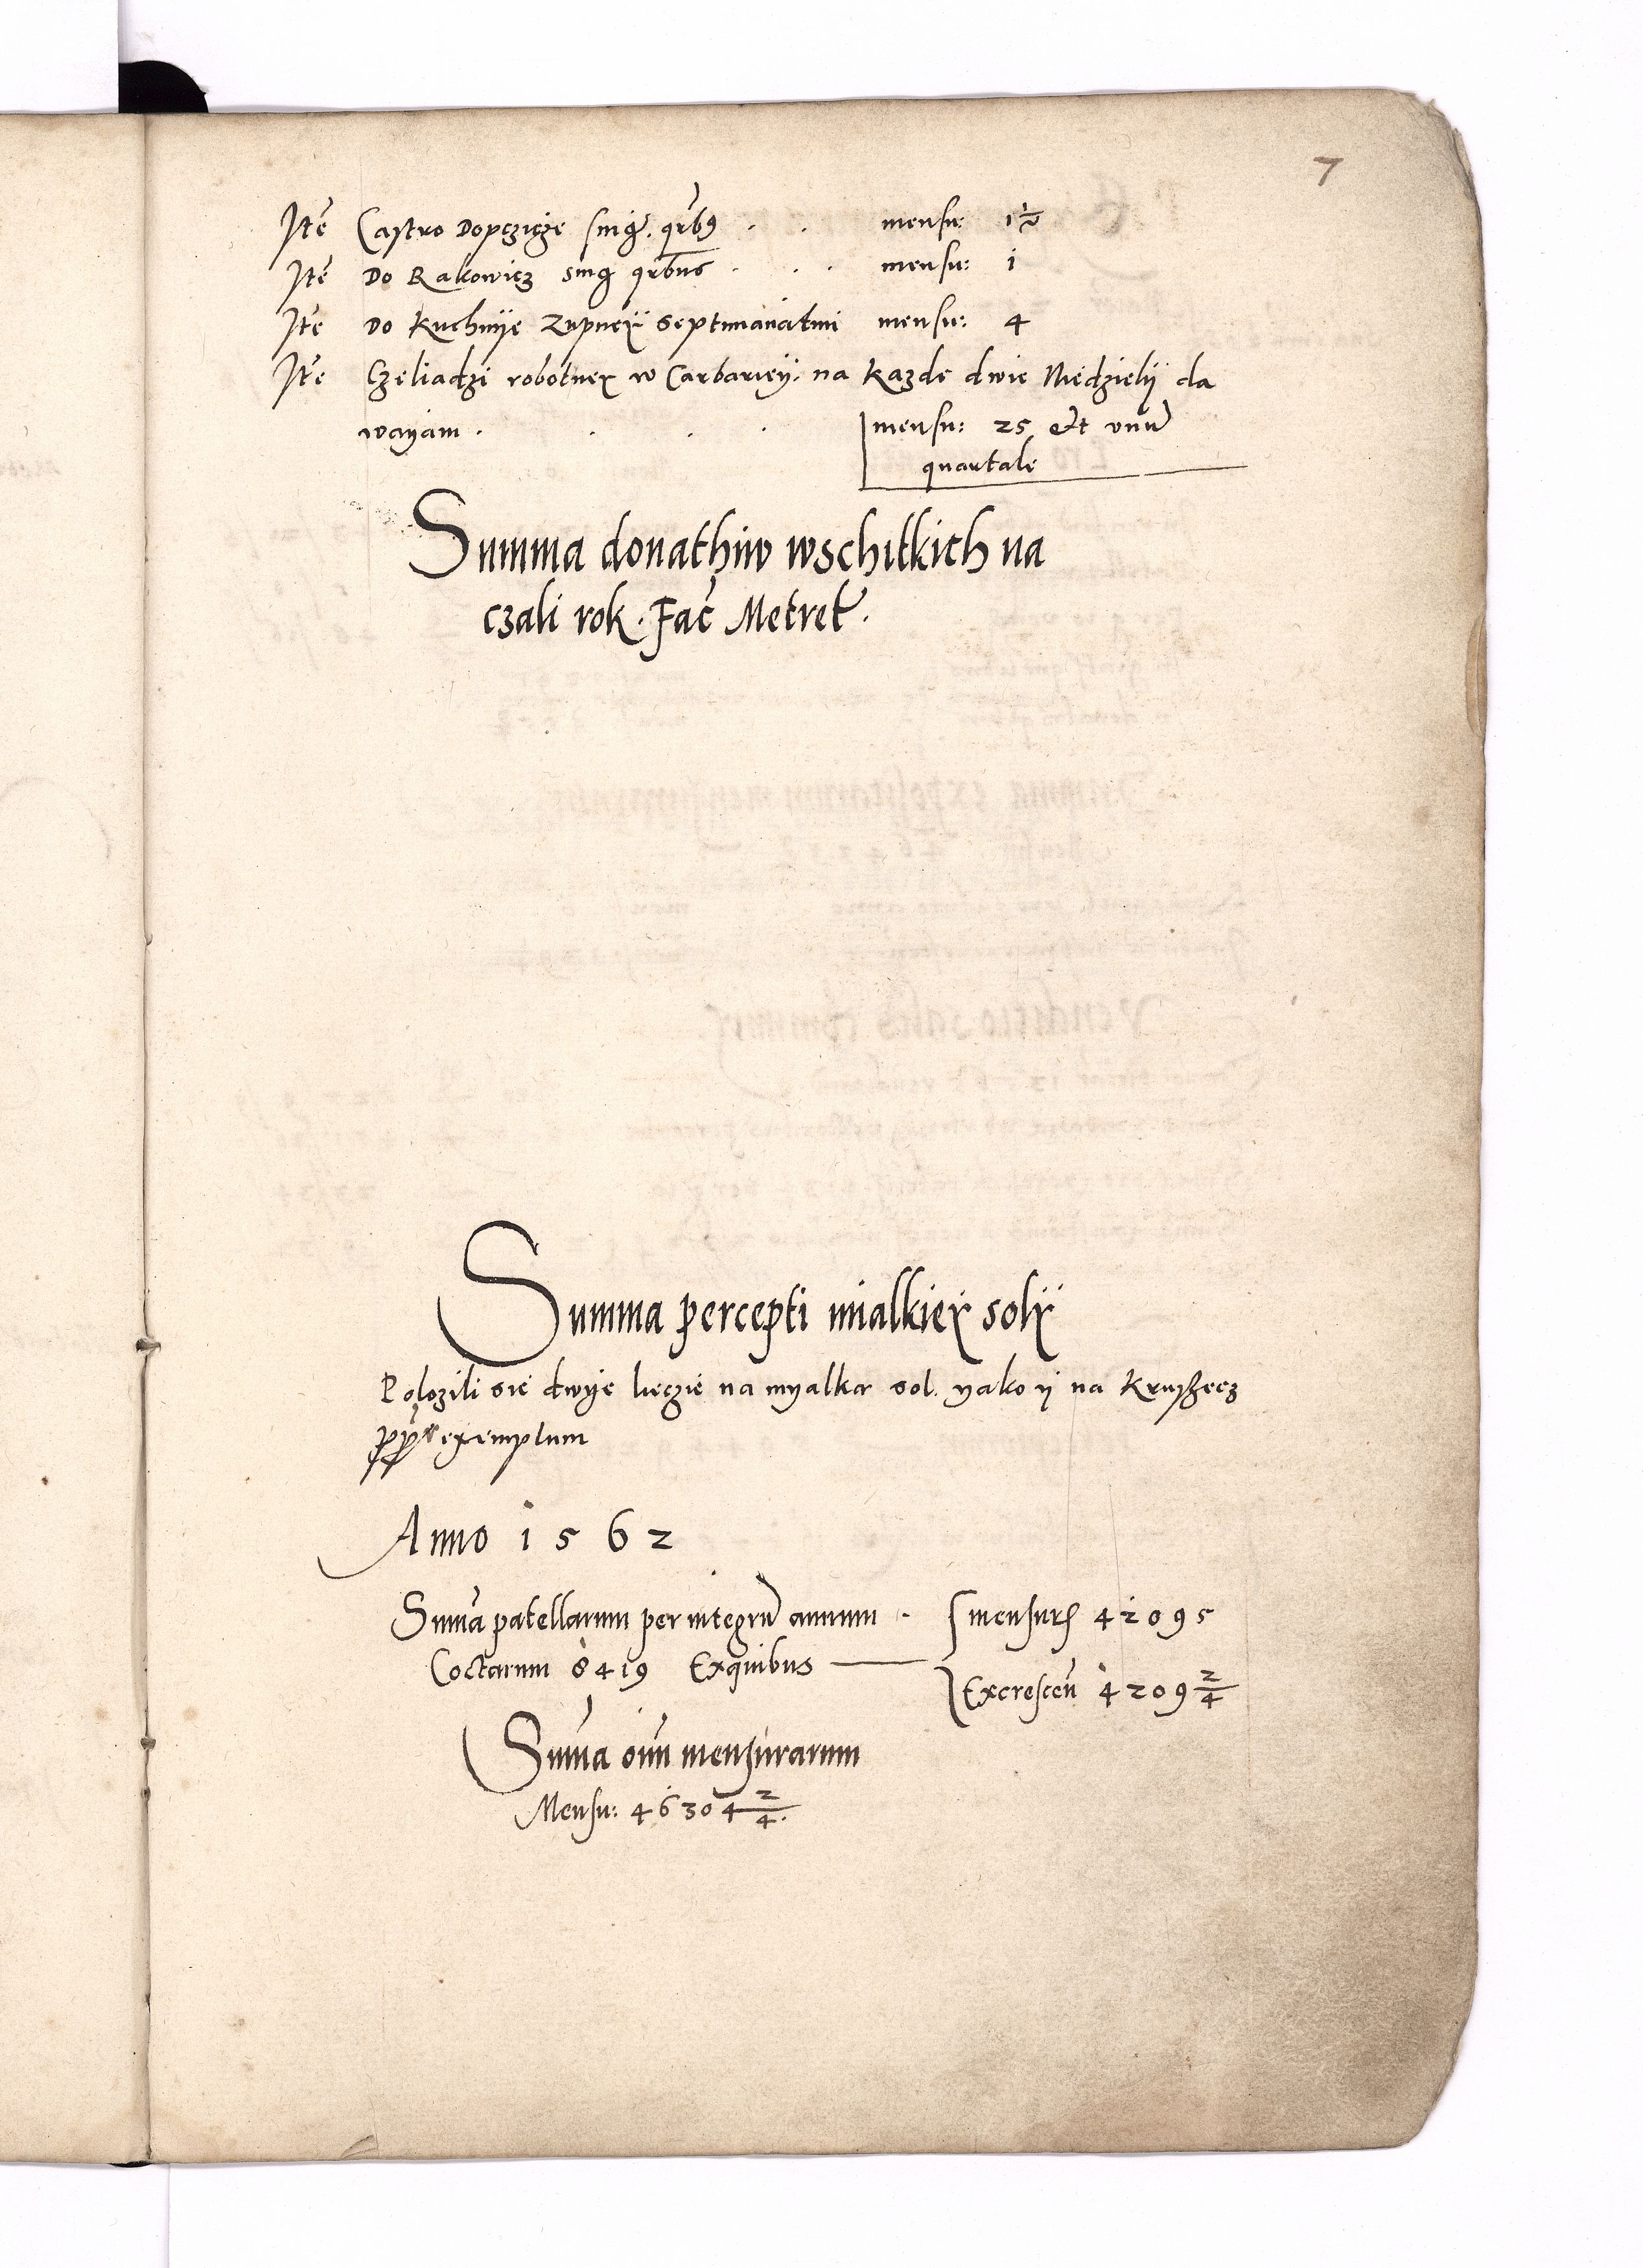 7
Ite Castro Dopczicze sing. qrbq . . mensu: 1½
Ite Do Rakowicz sing qrbus . . . mensu: i
Ite Do Kuchnije Zupneÿ Septimanatim mensu: 4
Ite Czeliadzi robotneÿ w Carbarieÿ. na kazde dwie Niedzielÿ da
waÿam . . . . mensu: 25 et vnū
quartale
Summa donathiw wschitkich na
czali rok. Fać Metret.
Summa percepti mialkieÿ solÿ
Polozili sie dwÿe liczie na myalka sol. yako ÿ na Kruszecz
exemplum
Anno 1562
Suma patellarum per integrū annum . mensurę 42095
Coctarum 8419 Exquibus — Excrescen 4209 2/4
Suma oim mensurarum
Mensu: 46304 2/4.